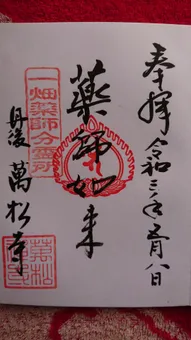 奉拝 令和三年五月八日
薬師如来
一畑薬師分霊所
丹後 萬松寺